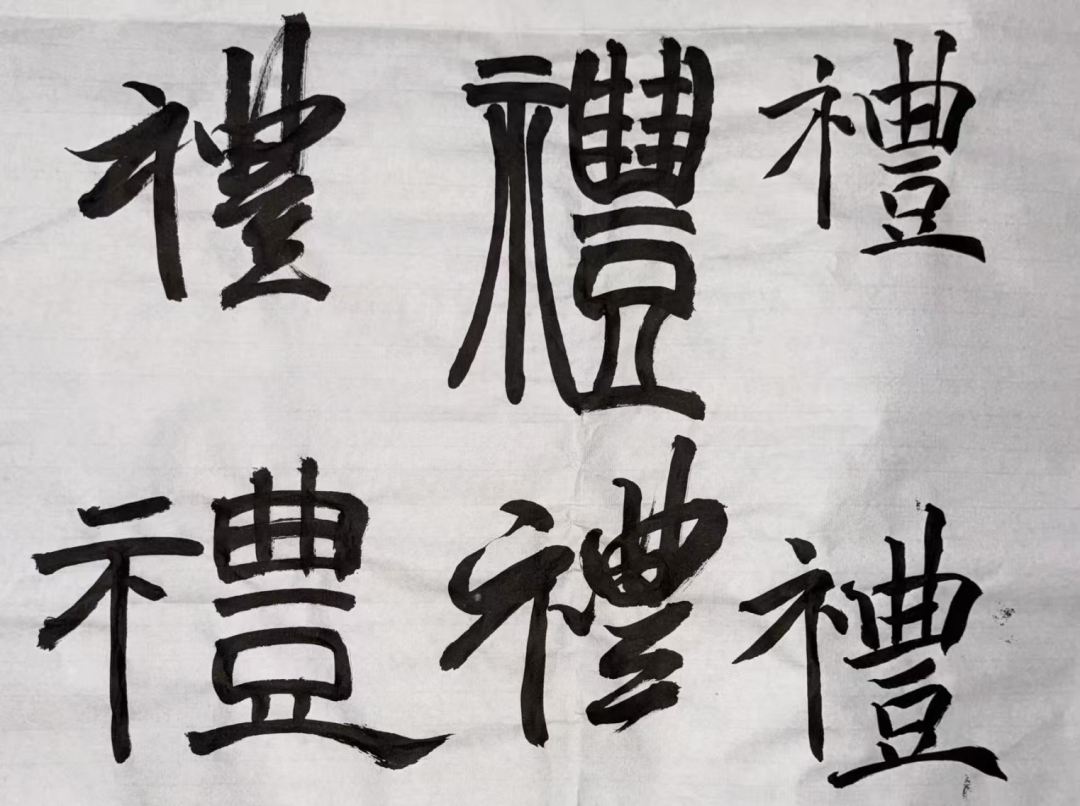 禮 禮 禮
禮 禮 禮